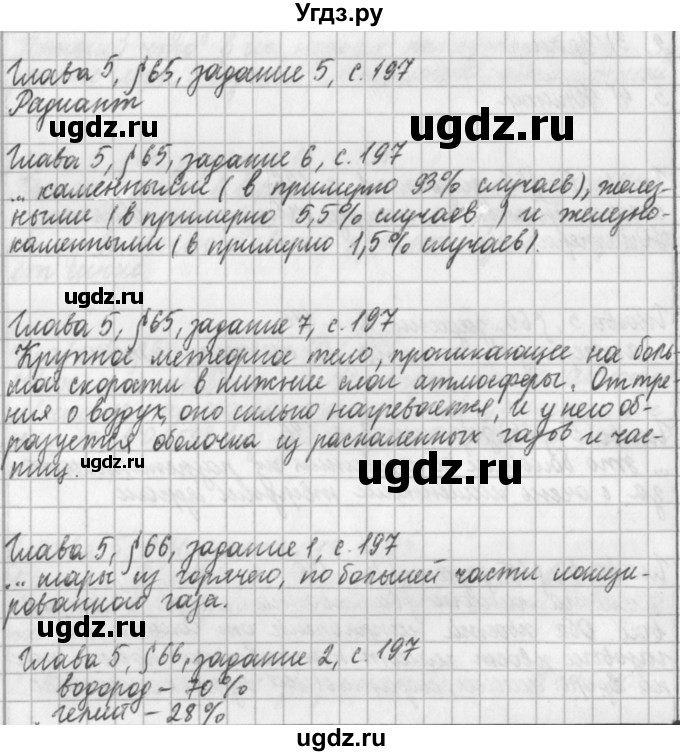 Угдз.ру
Глава 5, §65, задание 5, с. 197
Радиант
ugdz.ru
ugdz.ru
Глава 5, §65, задание 6, с. 197
... каменными (в примерно 93% случаев), желез-
ными (в примерно 5,5% случаев) и железно-
каменными (в примерно 1,5% случаев).
ugdz.ru
Глава 5, §65, задание 7, с. 197
Крупное метеорное тело, проникающее на боль-
шой скорости в нижние слои атмосферы. От тре-
ния о воздух, оно сильно нагревается, и у него об-
разуется оболочка из раскаленных газов и час-
тиц.
ugdz.ru
ugdz.ru
Глава 5, §66, задание 1, с. 197
... шары из горячего, по большей части ионизи-
рованного газа.
ugdz.ru
ugdz.ru
Глава 5, §66, задание 2, с. 197
водород – 70%
гелий – 28%
ugdz.ru